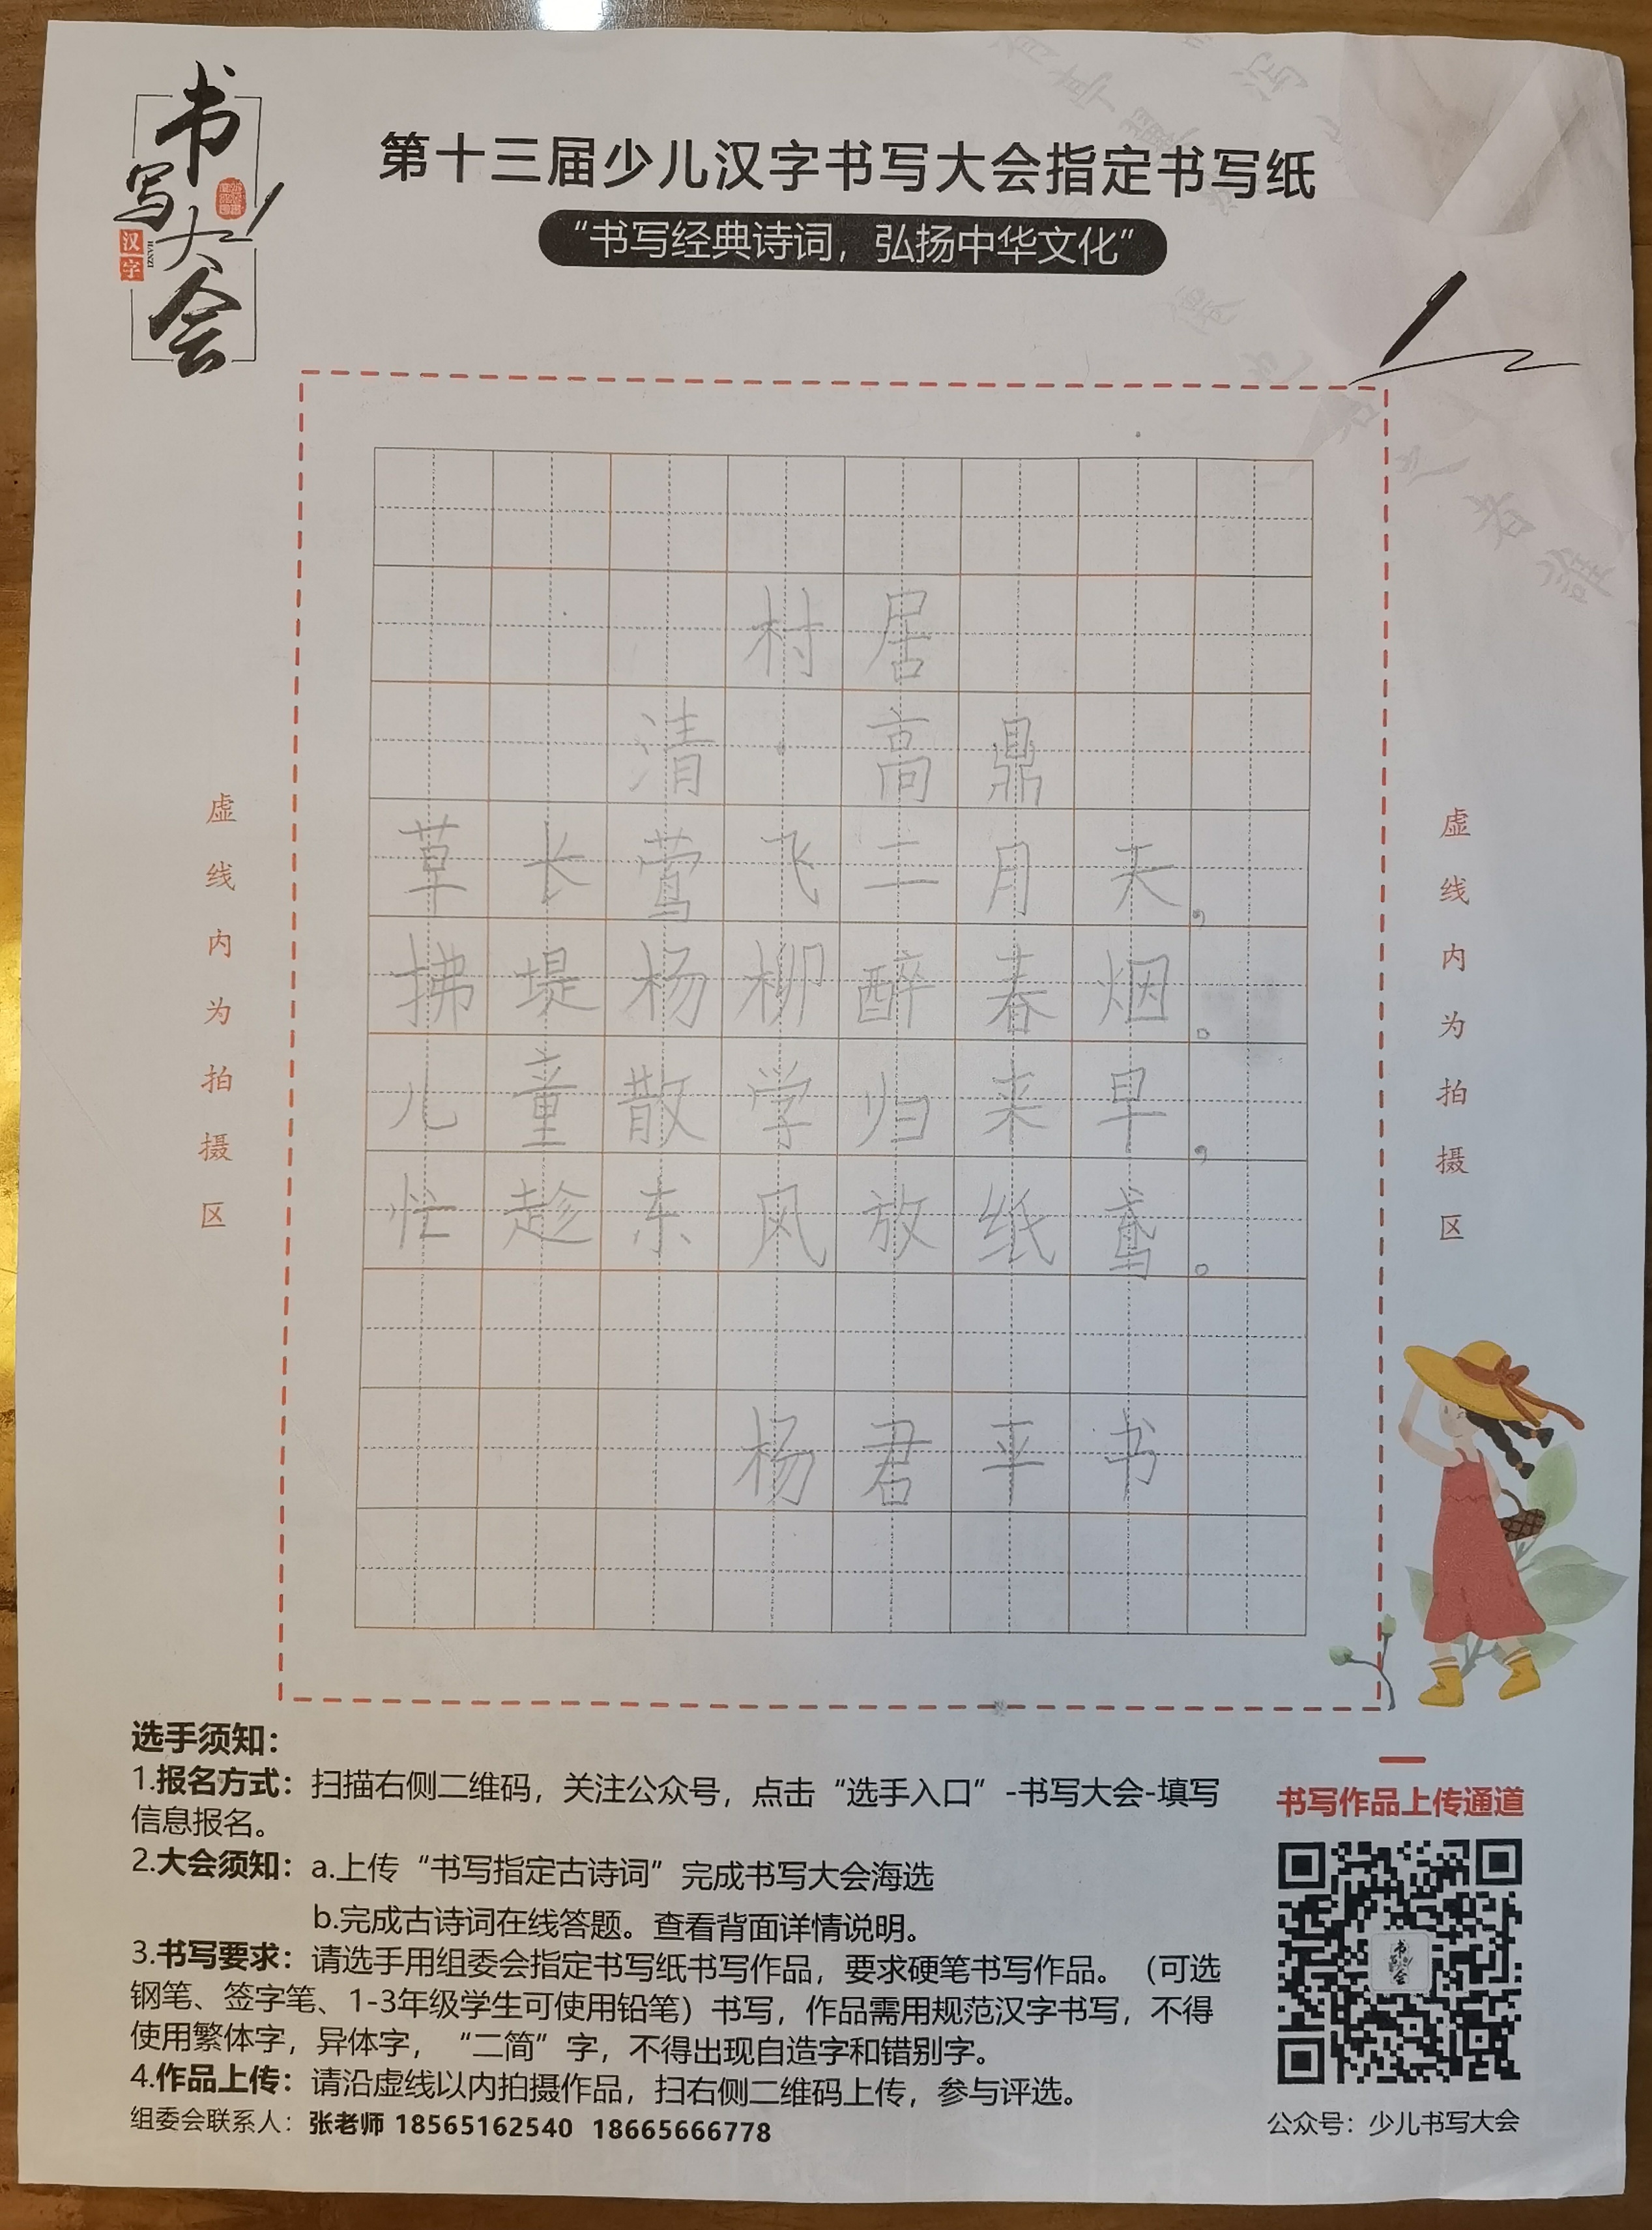 书写大会
汉字
HANZI
第十三届少儿汉字书写大会指定书写纸
“书写经典诗词，弘扬中华文化”
村居
清·高鼎
草长莺飞二月天，
拂堤杨柳醉春烟。
儿童散学归来早，
忙趁东风放纸鸢。
杨君平书
虚线内为拍摄区
虚线内为拍摄区
选手须知：
1.报名方式：扫描右侧二维码，关注公众号，点击“选手入口”-书写大会-填写
信息报名。
2.大会须知：a.上传“书写指定古诗词”完成书写大会海选
b.完成古诗词在线答题。查看背面详情说明。
3.书写要求：请选手用组委会指定书写纸书写作品，要求硬笔书写作品。（可选
钢笔、签字笔、1-3年级学生可使用铅笔）书写，作品需用规范汉字书写，不得
使用繁体字，异体字，“二简”字，不得出现自造字和错别字。
4.作品上传：请沿虚线以内拍摄作品，扫右侧二维码上传，参与评选。
组委会联系人：张老师 18565162540 18665666778
书写作品上传通道
公众号：少儿书写大会